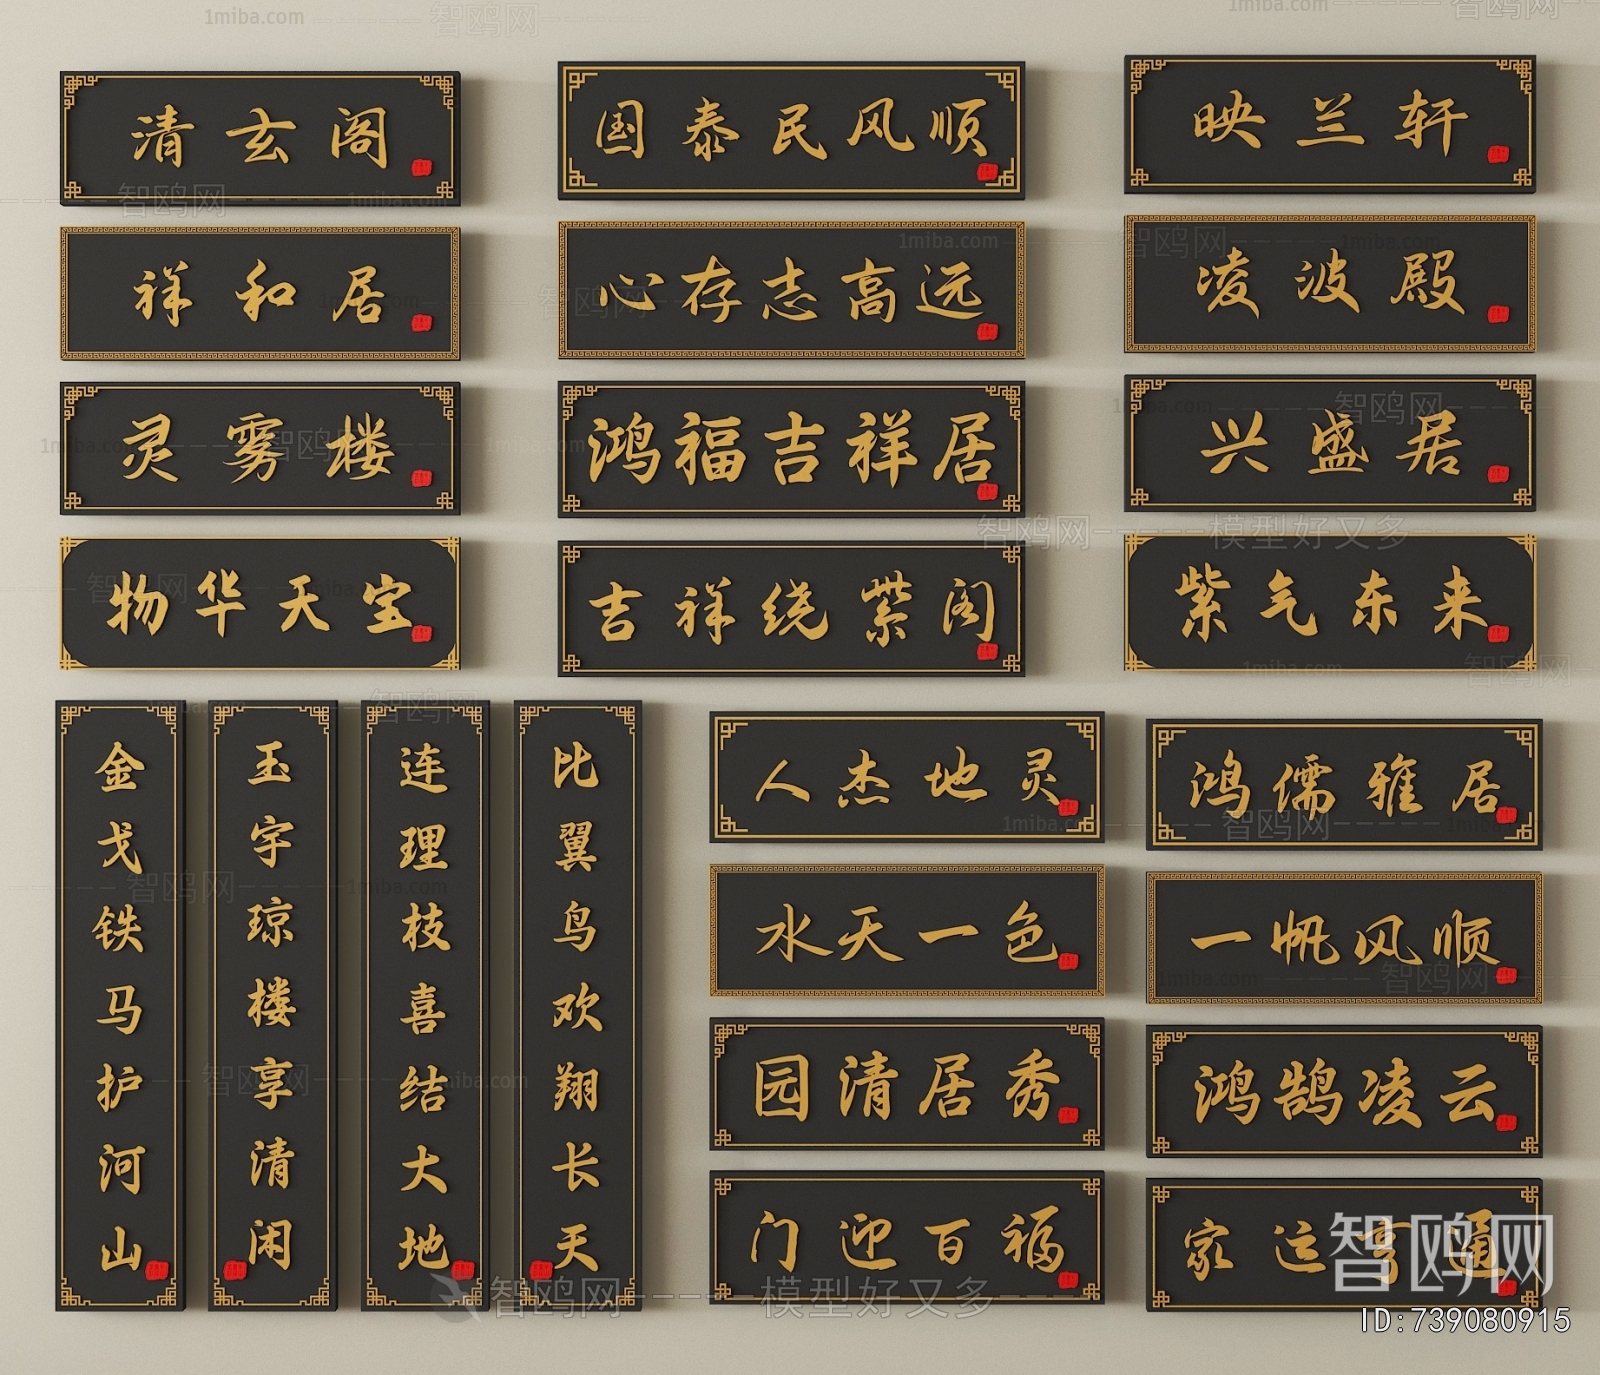 清玄阁
国泰民风顺
映兰轩
祥和居
心存志高远
凌波殿
灵雾楼
鸿福吉祥居
兴盛居
物华天宝
吉祥绕紫阁
紫气东来
金戈铁马护河山
玉宇琼楼享清闲
连理枝喜结大地
比翼鸟欢翔长天
人杰地灵
鸿儒雅居
水天一色
一帆风顺
园清居秀
鸿鹄凌云
门迎百福
家运亨通
智鸥网
模型好又多
1miba.com
ID:739080915